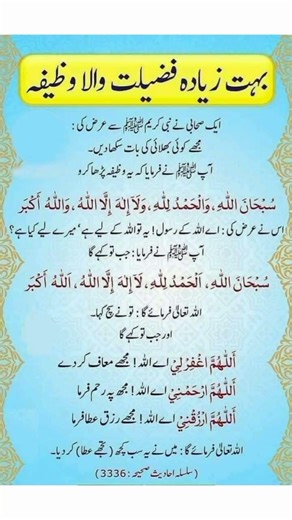 بہت زیادہ فضیلت والا وظیفہ
ایک صحابی نے نبی کریم ﷺ سے عرض کی:
مجھے کوئی بھلائی کی بات سکھا دیں۔
آپ ﷺ نے فرمایا کہ یہ وظیفہ پڑھا کرو
سُبْحَانَ اللهِ، وَالْحَمْدُ لِلّٰهِ، وَلَاۤ اِلٰهَ اِلَّا اللهُ، وَاللهُ اَكْبَر
اس نے عرض کی: اے اللہ کے رسول! یہ تو اللہ کے لیے ہے' میرے لیے کیا ہے؟
آپ ﷺ نے فرمایا: جب تو کہے گا
سُبْحَانَ اللهِ، اَلْحَمْدُ لِلّٰهِ، لَآ اِلٰهَ اِلَّا اللهُ، اَللهُ اَكْبَر
اللہ تعالیٰ فرمائے گا: تو نے سچ کہا۔
اور جب تو کہے گا
اَللّٰهُمَّ اغْفِرْ لِيْ اے اللہ! مجھے معاف کر دے
اَللّٰهُمَّ ارْحَمْنِيْ اے اللہ! مجھ پہ رحم فرما
اَللّٰهُمَّ ارْزُقْنِيْ اے اللہ! مجھے رزق عطا فرما
اللہ تعالیٰ فرمائے گا: میں نے یہ سب کچھ (تجھے عطا) کر دیا۔
(سلسلہ احادیث صحیحہ: 3336)